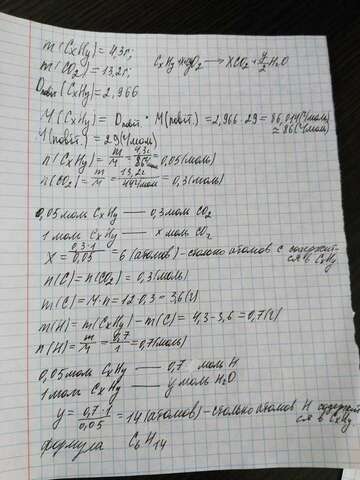 m(CxHy) = 4,3г;
m(CO2) = 13,2г; CxHy + O2 → XCO2 + y/2 H2O
Dповіт.(CxHy) = 2,966
M(CxHy) = Dповіт. · M(повіт.) = 2,966 · 29 = 86,014 (г/моль)
M(повіт.) = 29(г/моль) ≈ 86(г/моль)
n(CxHy) = m/M = 4,3г/86г/моль = 0,05(моль)
n(CO2) = m/M = 13,2г/44г/моль = 0,3(моль)
0,05 моль CxHy — 0,3 моль CO2
1 моль CxHy — x моль CO2
X = 0,3·1/0,05 = 6 (атомов) - столько атомов C содержит-
ся в CxHy
n(C) = n(CO2) = 0,3(моль)
m(C) = M·n = 12·0,3 = 3,6(г)
m(H) = m(CxHy) - m(C) = 4,3 - 3,6 = 0,7(г)
n(H) = m/M = 0,7/1 = 0,7(моль)
0,05 моль CxHy — 0,7 моль H
1 моль CxHy — y моль H2O
y = 0,7·1/0,05 = 14 (атомов) - столько атомов H содержит
ся в CxHy
формула C6H14